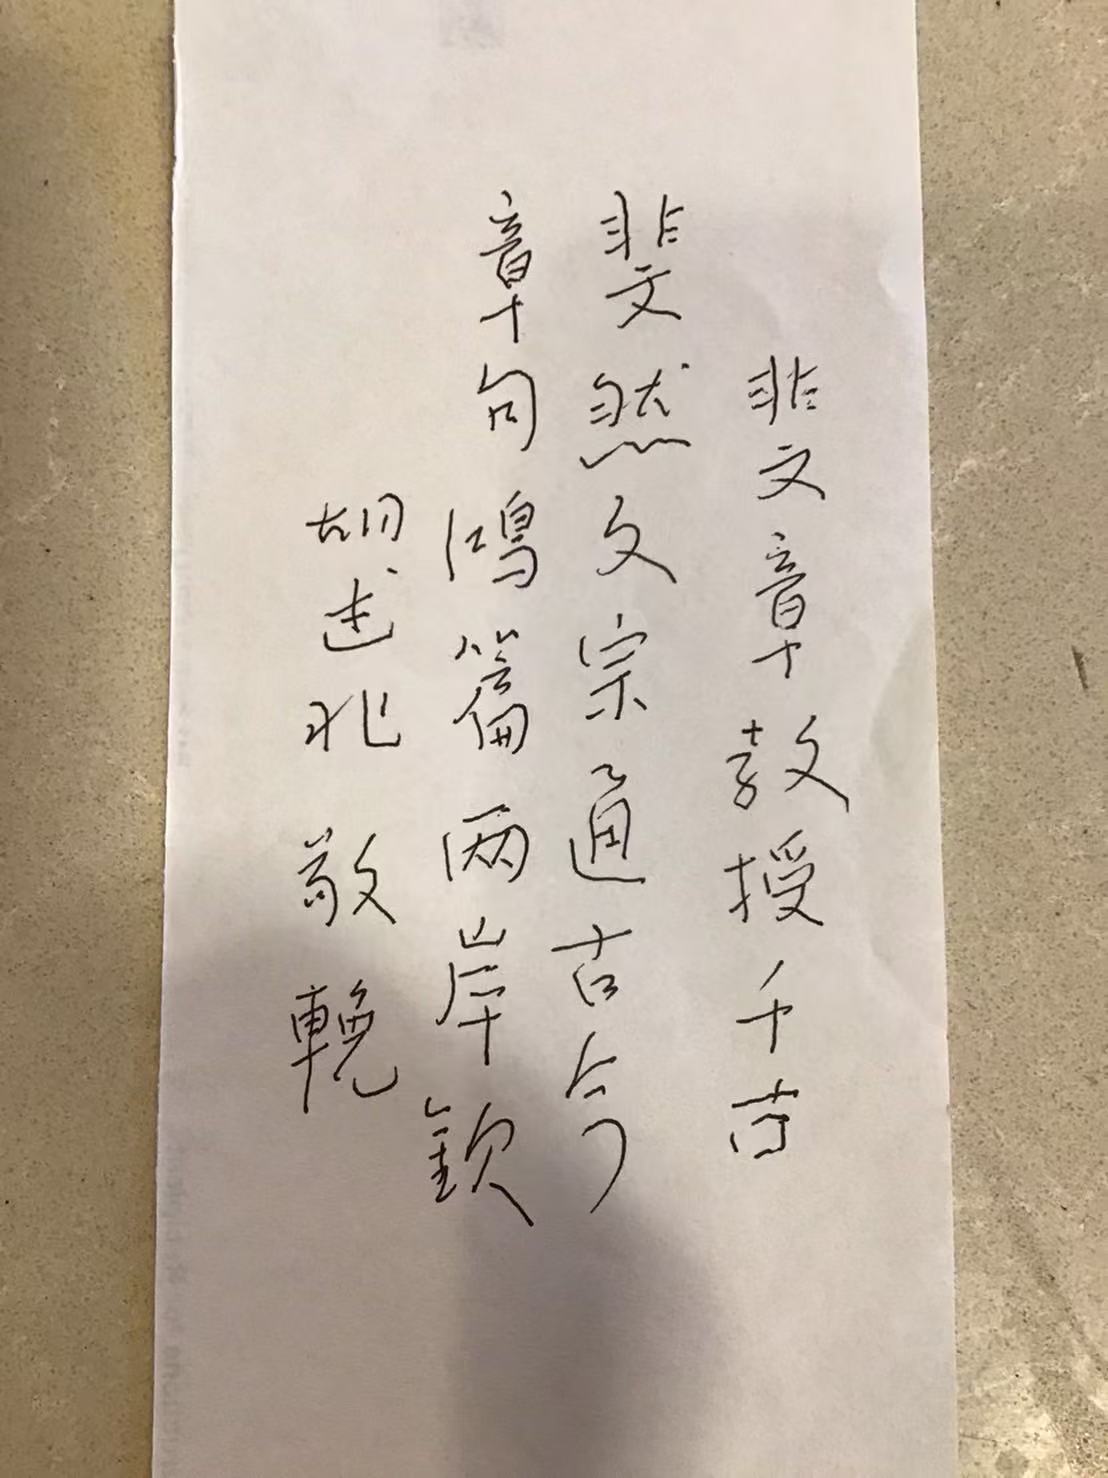 裴文章教授千古
斐然文宗通古今
章句鴻篇两岸欽
胡述兆敬輓